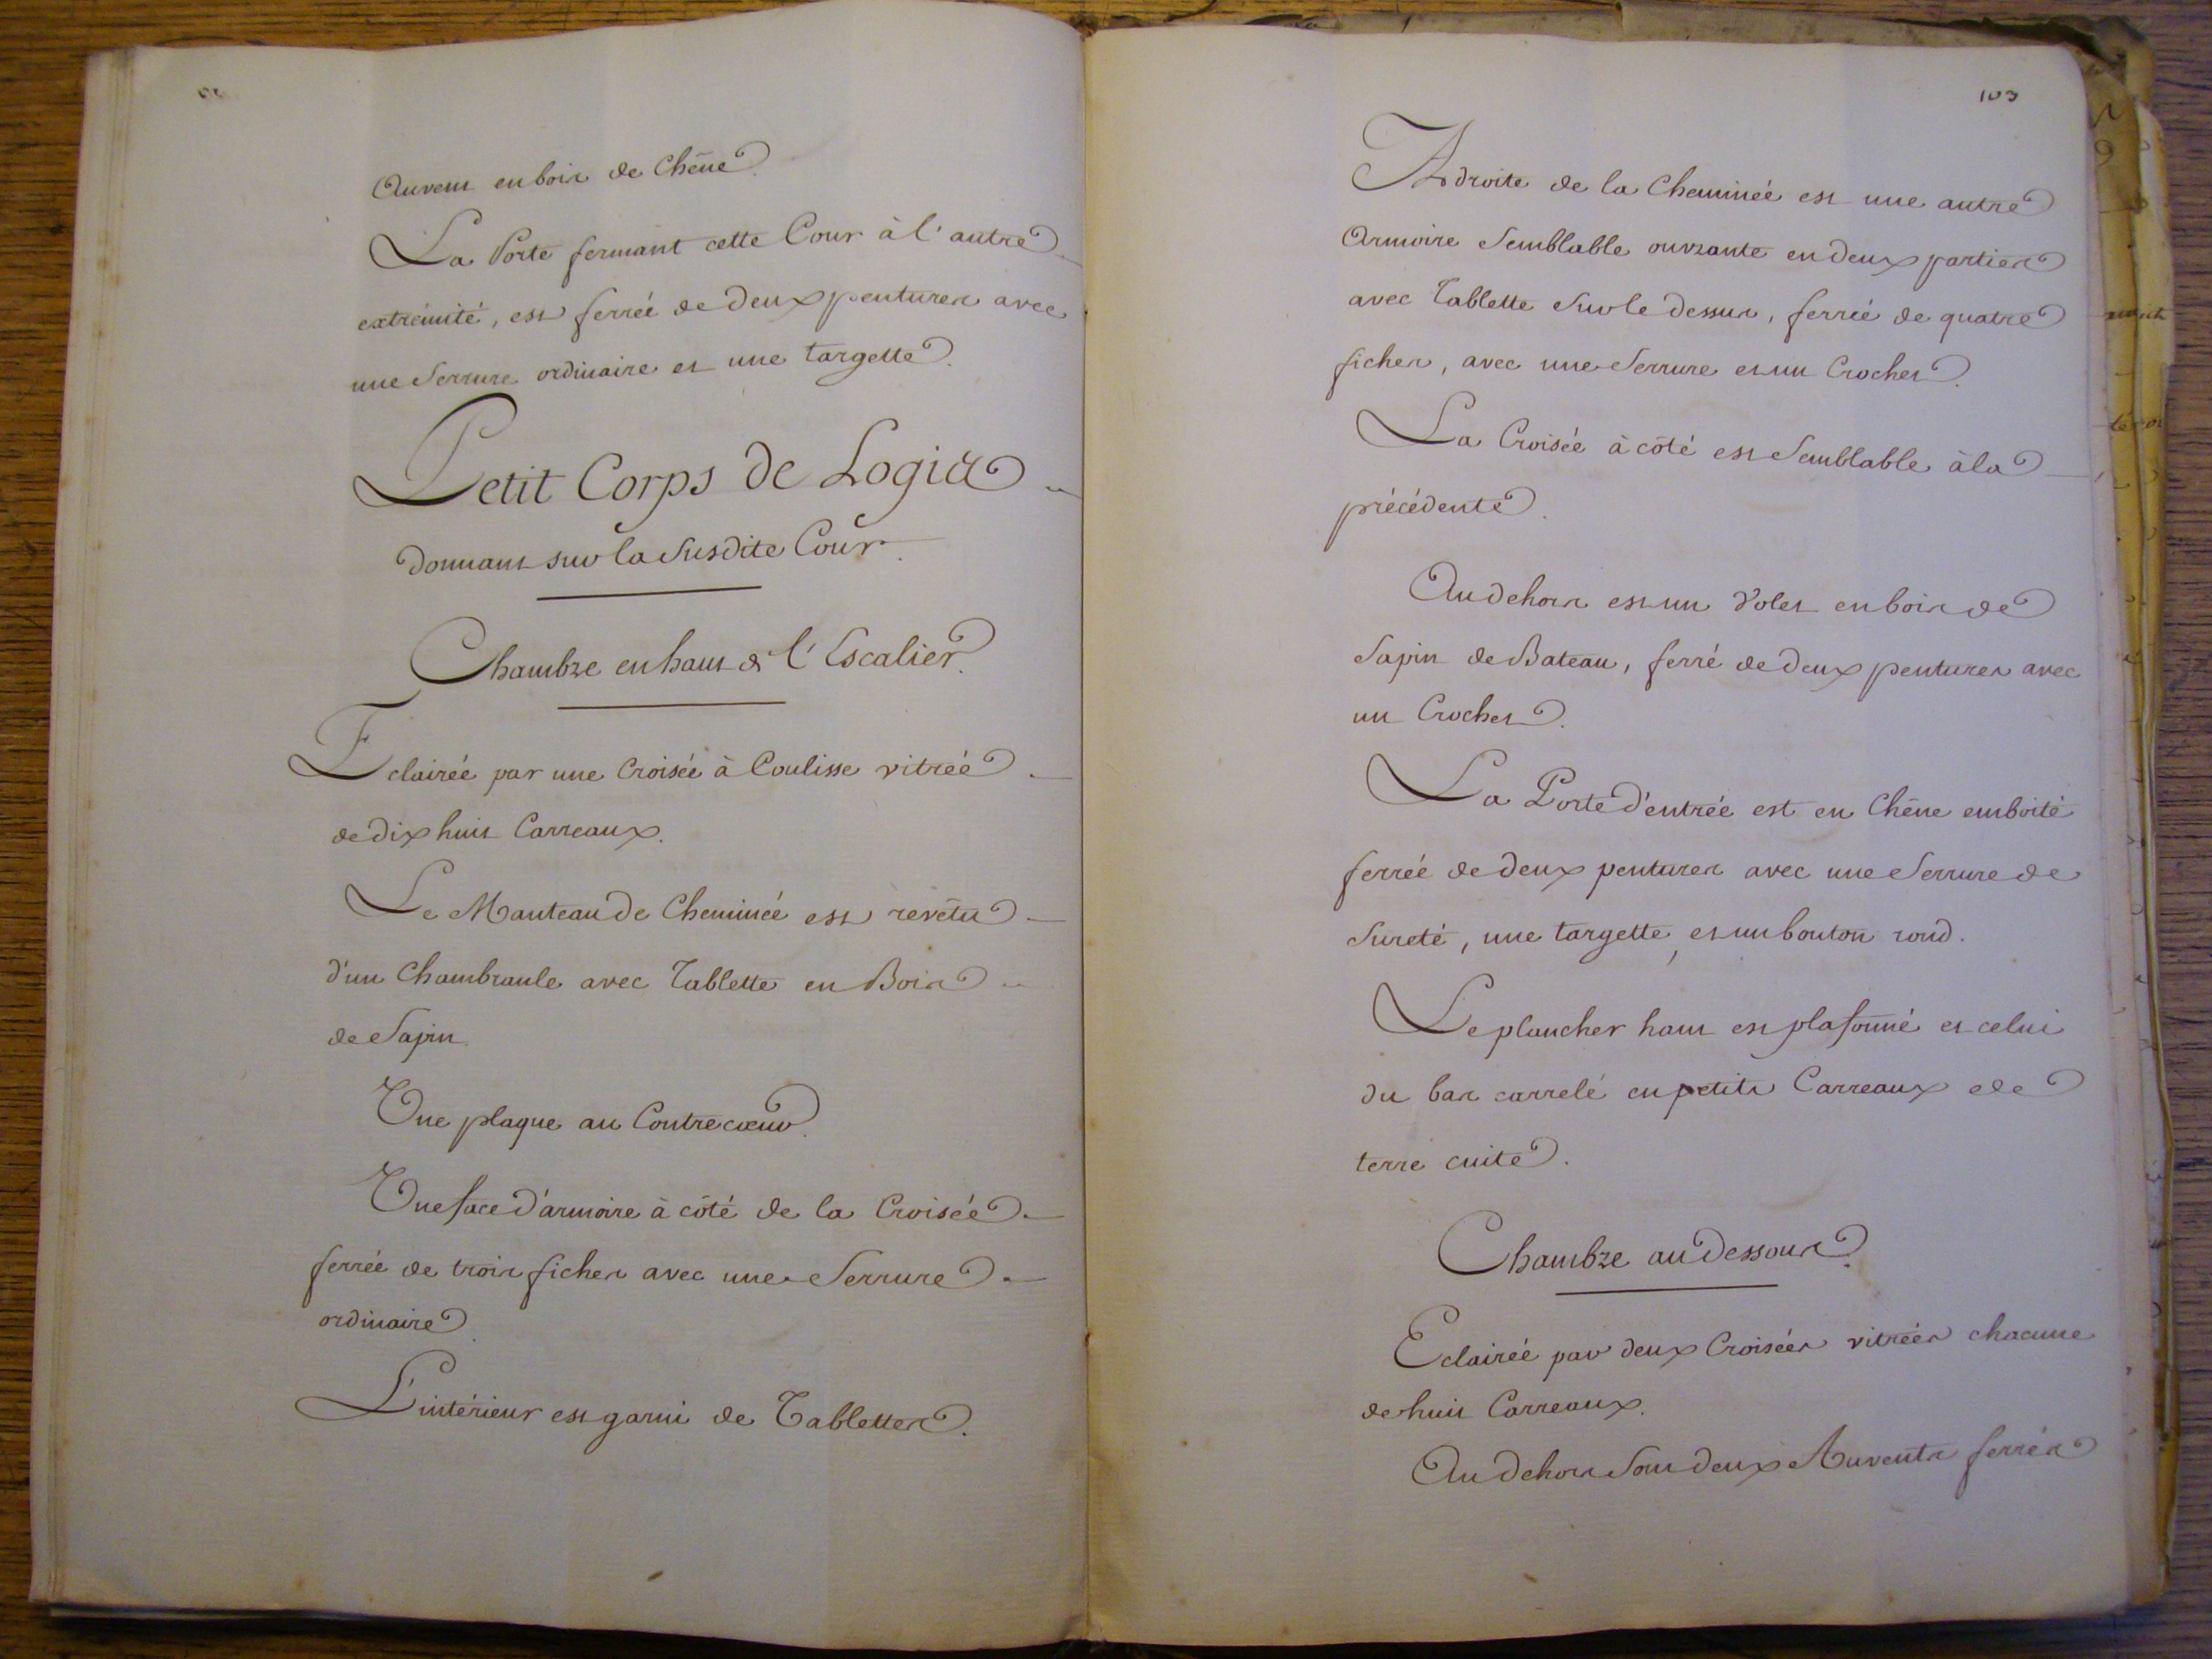 Auvent en bois de Chêne.
La Porte fermant cette Cour à l'autre
extrêmité, est ferrée de deux pentures avec
une Serrure ordinaire et une targette.
Petit Corps de Logis
donnant sur la Susdite Cour.
Chambre en haut de l'Escalier.
Eclairée par une Croisée à Coulisse vitrée
de dix huit Carreaux.
Le Manteau de Cheminée est revêtu
d'un Chambranle avec Tablette en Bois
de Sapin.
Une plaque au Contrecœur.
Une face d'armoire à côté de la Croisée
ferrée de trois fiches avec une Serrure
ordinaire.
L'intérieur est garni de Tablettes.
103
A droite de la Cheminée est une autre
Armoire Semblable ouvrante en deux parties
avec Tablette Sur le dessus, ferrée de quatre
fiches, avec une Serrure et un Crochet.
La Croisée à côté est Semblable à la
précédente.
Au dehors est un Volet en bois de
Sapin de Bateau, ferré de deux pentures avec
un Crochet.
La Porte d'entrée est en Chêne emboité
ferrée de deux pentures avec une Serrure de
Sureté, une targette, et un bouton rond.
Le plancher haut est plafonné et celui
du bas carrelé en petits Carreaux de
terre cuite.
Chambre au dessous.
Eclairée par deux Croisées vitrées chacune
de huit Carreaux.
Au dehors Sont deux Auvents ferrés